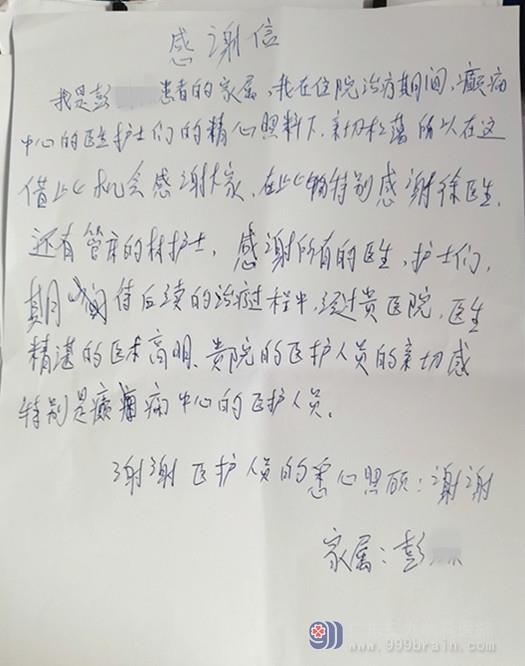 感谢信
我是彭 患者的家属,我在住院治疗期间,癫痫
中心的医生护士们的精心照料下,亲切 所以在这
借此机会感谢大家,在此 特别感谢徐医生,
还有管床的林护士,感谢所有的医生,护士们,
期待后续的治疗过程中,通过贵医院,医生
精湛的医术高明、贵院的医护人员的亲切感
特别是癫痫病中心的医护人员。
谢谢医护人员的悉心照顾:谢谢
家属:彭
www.999brain.com